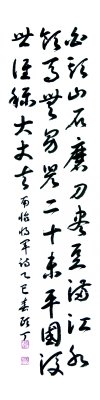 白頭山石磨刀盡豆滿江水
飮馬無男兒二十未平國後
世誰稱大丈夫 南怡將軍詩 乙巳春